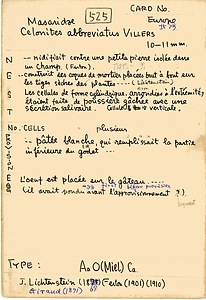 525 CARD No.
Masaridae Europe
Celonites abbreviatus VILLERS
10–11 mm.
-- nidifiait contre une petite pierre isolée dans
un champ. (Ferton).
-- construit des coques de mortier placées bout à bout sur
les tiges sèches des plantes ---- (Lichtenstein)
Les cellules de forme cylindrique, arrondies à l'extrémité,
étaient faites de poussière gâchée avec une
sécrétion salivaire. verticale.
NEST
No. CELLS plusieurs
-- pâtée blanche, qui remplissait la partie
inférieure du godet ---
L'oeuf est placée sur le gâteau ----
(il avait pondu avant l'approvisionnement ?).
TYPE: AaO(Miel) Ca.
J. Lichtenstein Ferton (1901) (1910)
Giraud (1871)